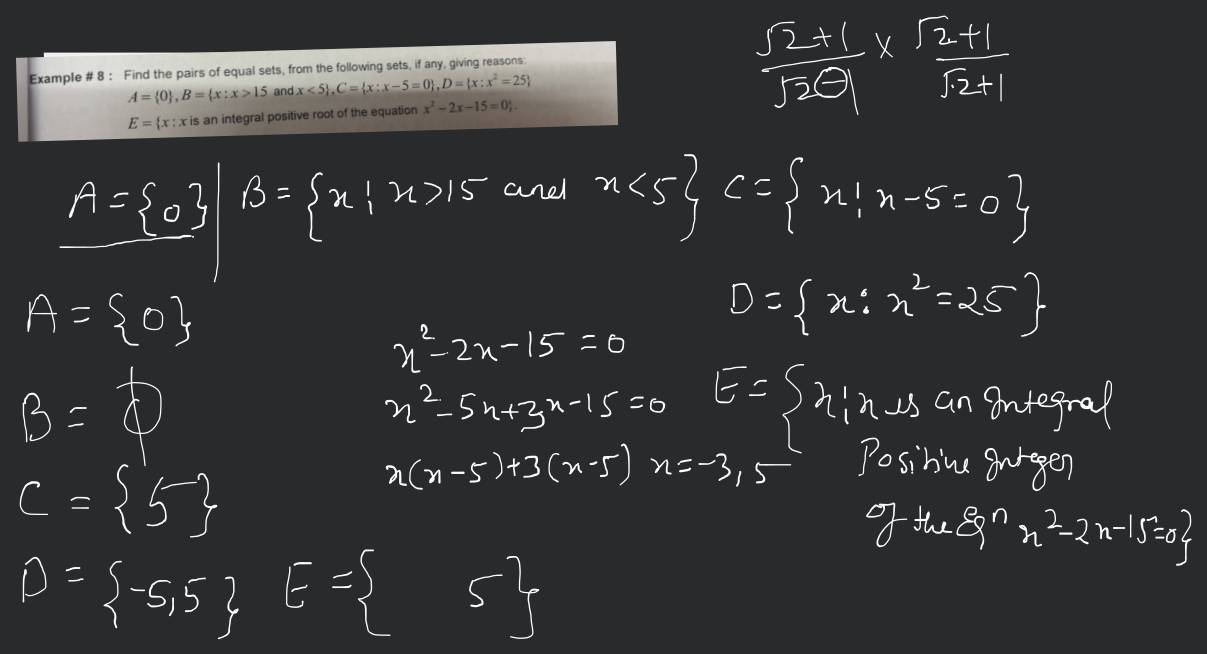 Example # 8 : Find the pairs of equal sets, from the following sets, if any, giving reasons:
A = {0}, B = {x : x > 15 and x < 5}, C = {x : x − 5 = 0}, D = {x : x² = 25}
E = {x : x is an integral positive root of the equation x² − 2x − 15 = 0}.
√2+1 × √2+1
√2-1 √2+1
A = {0} | B = {x ¦ x>15 and x<5} C = {x ¦ x-5=0}
D = {x : x² = 25}
A = {0}
x² - 2x - 15 = 0
B = ϕ
x² - 5x + 3x - 15 = 0
E = {x ¦ x is an Integral
Positive Integer
of the Eqⁿ x² - 2x - 15 = 0}
x(x-5)+3(x-5) x = -3, 5
C = {5}
D = {-5,5} E = { 5}